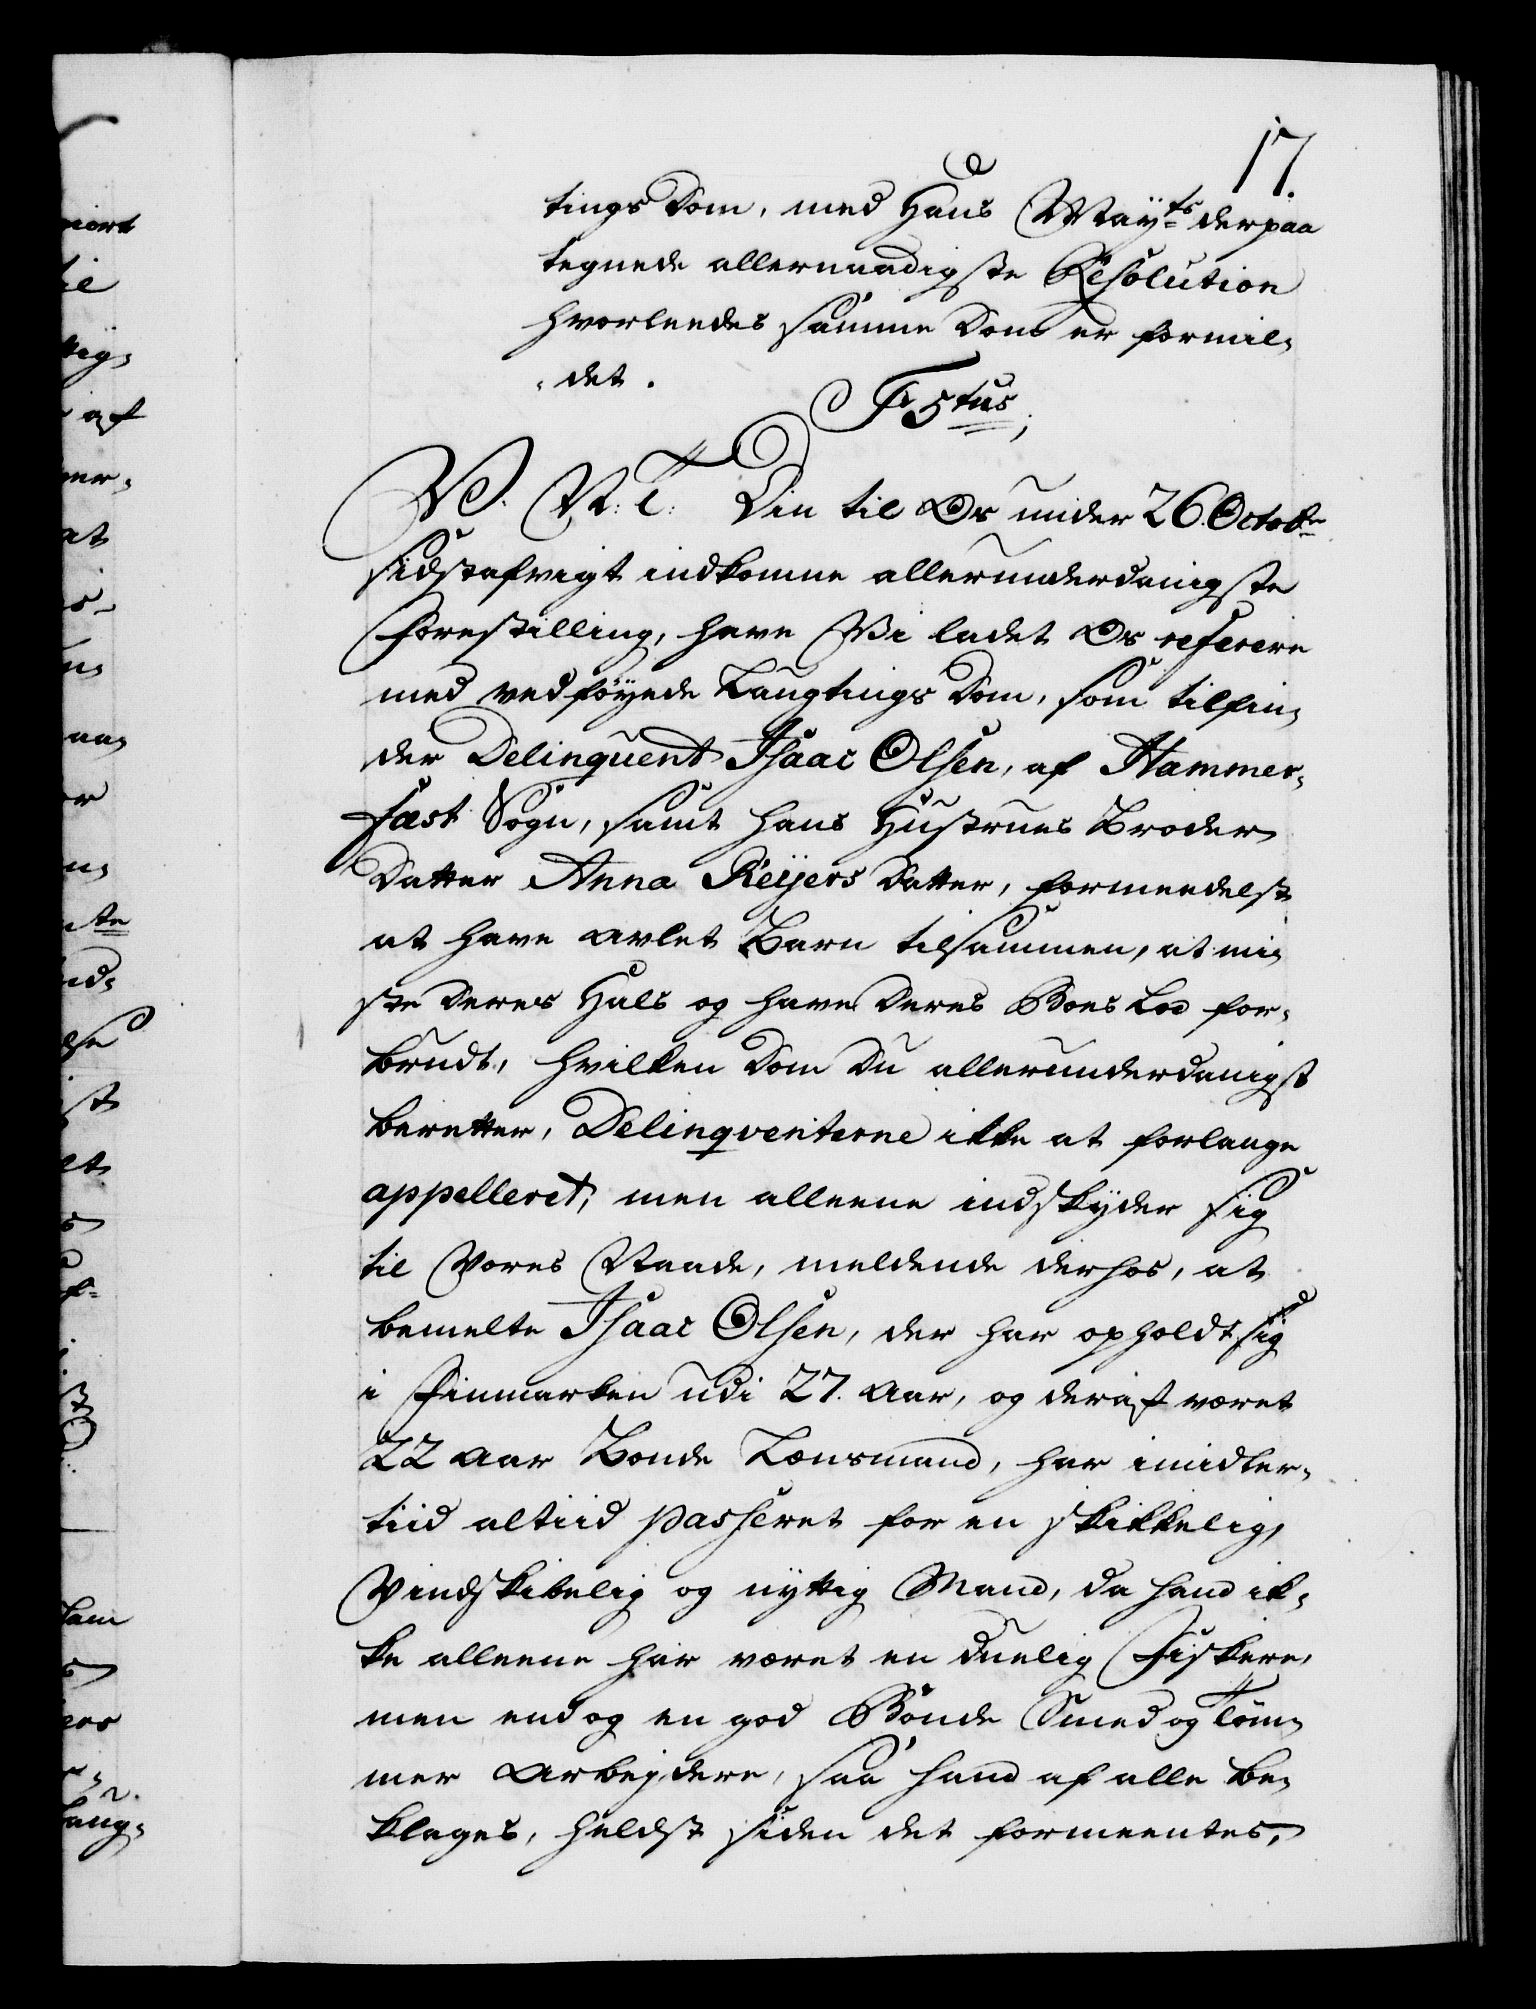 17.
tings Dom, med Hans May:ts derpaa
tegnede allernaadigste Resolution
hvorleedes samme Dom er formil„
„det.
F5tus,
V. V: T: Din til Os under 26. Octobr
sidstafvigt indkomne allerunderdanigste
Forestilling, have Vi ladet Os referere
med vedføyede Laugtings Dom, som tilfin„
der Delinquent Isaac Olsen, af Hammer„
fæst Sogn, samt hans Hustrues Broder
Datter Anna Reijers Datter, formeedelst
at have avlet Barn tilsammen, at mi„
ste Deres Hals og have Deres Boes Lod for„
brudt, hvilken Dom Du allerunderdanigst
beretter, Delinqventerne ikke at forlange
appelleret; men alleene indskyder sig
til Vores Naade, meldende derhos, at
bemelte Isaac Olsen, der har opholdt sig
i Finmarken udi 27. Aar, og deraf været
22 Aar Bonde Lensmand, har imidler„
tiid altiid passeret for en skikkelig,
Vindskibelig og nyttig Mand, da hand ik„
ke alleene har været en duelig Fiskere,
men endog en god Bonde Smed og Töm„
mer Arbejdere, saa hand af alle be„
klages, heldst siden det formeentes,